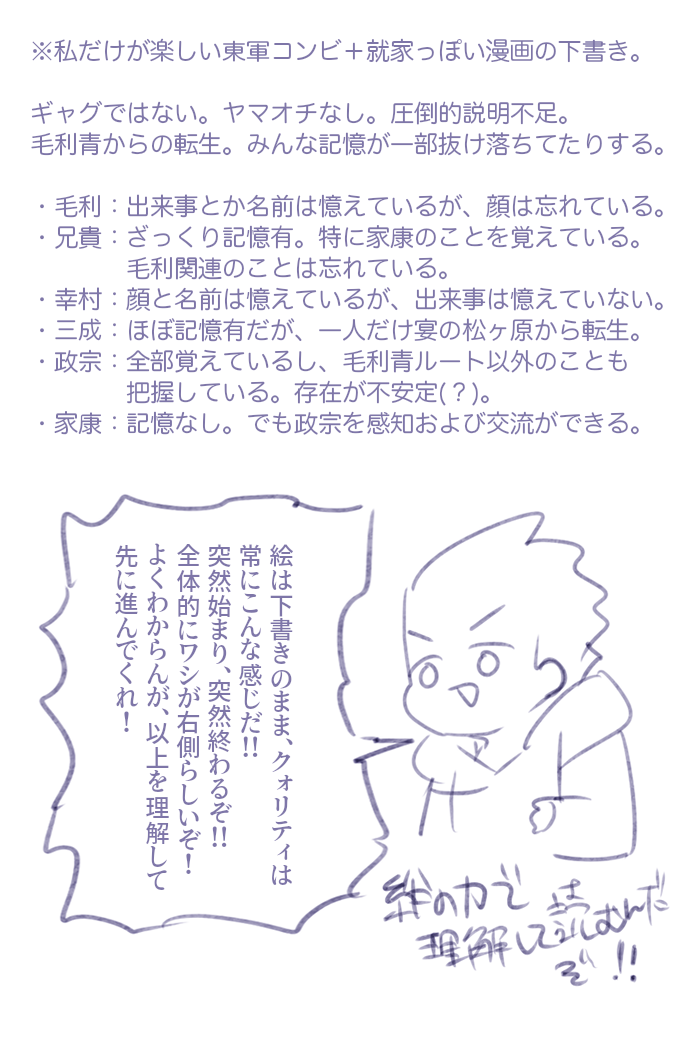 ※私だけが楽しい東軍コンビ＋就家っぽい漫画の下書き。
ギャグではない。ヤマオチなし。圧倒的説明不足。
毛利青からの転生。みんな記憶が一部抜け落ちてたりする。
・毛利：出来事とか名前は憶えているが、顔は忘れている。
・兄貴：ざっくり記憶有。特に家康のことを覚えている。
毛利関連のことは忘れている。
・幸村：顔と名前は憶えているが、出来事は憶えていない。
・三成：ほぼ記憶有だが、一人だけ宴の松ヶ原から転生。
・政宗：全部覚えているし、毛利青ルート以外のことも
把握している。存在が不安定(？)。
・家康：記憶なし。でも政宗を感知および交流ができる。
絵は下書きのまま、クォリティは
常にこんな感じだ!!
突然始まり、突然終わるぞ!!
全体的にワシが右側らしいぞ！
よくわからんが、以上を理解して
先に進んでくれ！
絆の力で
理解して読むんだ
ぞ!!